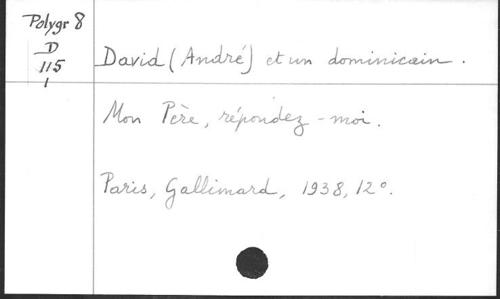 Polygr 8
D
115
1
David (André) et un dominicain.
Mon Père, répondez-moi.
Paris, Gallimard, 1938, 12°.